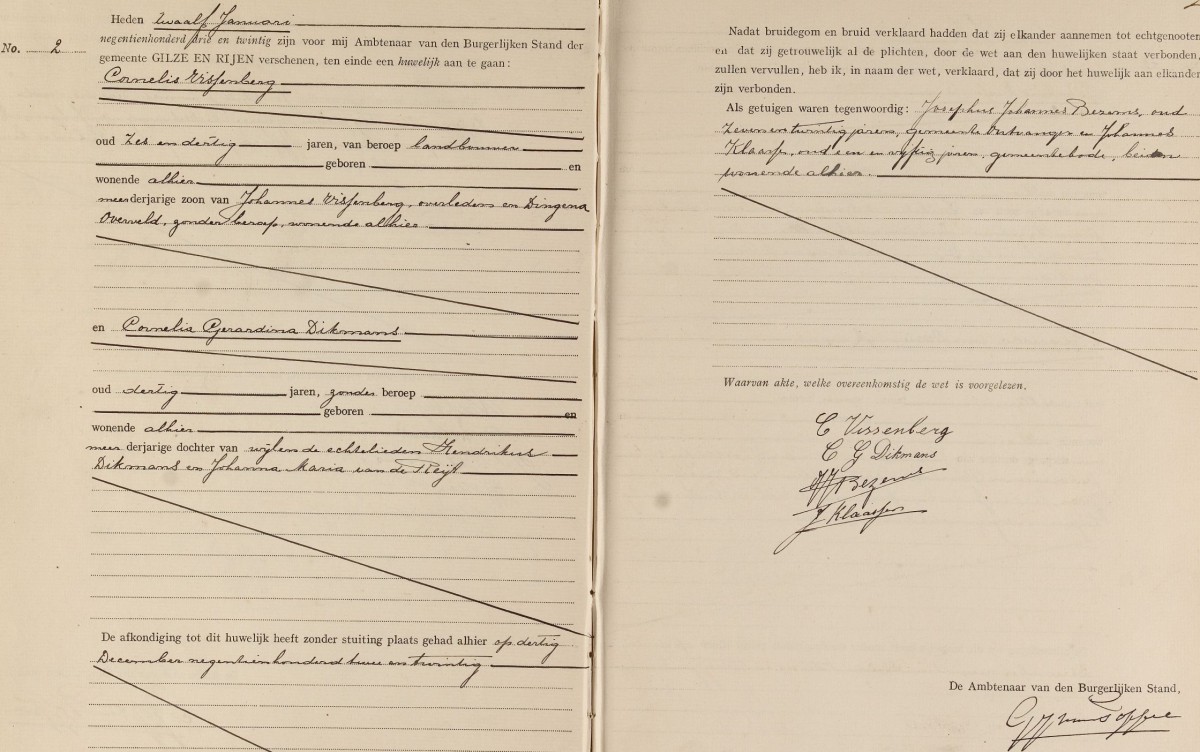 Heden twaalf Januari
No. 2
negentienhonderd drie en twintig zijn voor mij Ambtenaar van den Burgerlijken Stand der
gemeente GILZE EN RIJEN verschenen, ten einde een huwelijk aan te gaan:
Cornelis Vissenberg
oud zes en dertig jaren, van beroep landbouwer
geboren en
wonende alhier
meerderjarige zoon van Johannes Vissenberg, overleden en Dingena
Overveld, zonder beroep, wonende alhier
en Cornelia Gerardina Dikmans
oud dertig jaren, zonder beroep
geboren en
wonende alhier
meerderjarige dochter van wijlen de echtelieden Hendrikus
Dikmans en Johanna Maria van de Reijt
De afkondiging tot dit huwelijk heeft zonder stuiting plaats gehad alhier op dertig
December negentienhonderd twee en twintig
Nadat bruidegom en bruid verklaard hadden dat zij elkander aannemen tot echtgenooten
en dat zij getrouwelijk al de plichten, door de wet aan den huwelijken staat verbonden,
zullen vervullen, heb ik, in naam der wet, verklaard, dat zij door het huwelijk aan elkander
zijn verbonden.
Als getuigen waren tegenwoordig: Josephus Johannes Bezems, oud
zeven en twintig jaren, gemeente ontvanger en Johannes
Klaassen, oud een en vijftig jaren, gemeentebode, beiden
wonende alhier.
Waarvan akte, welke overeenkomstig de wet is voorgelezen.
C Vissenberg
C G Dikmans
JJ Bezems
J Klaassen
De Ambtenaar van den Burgerlijken Stand,